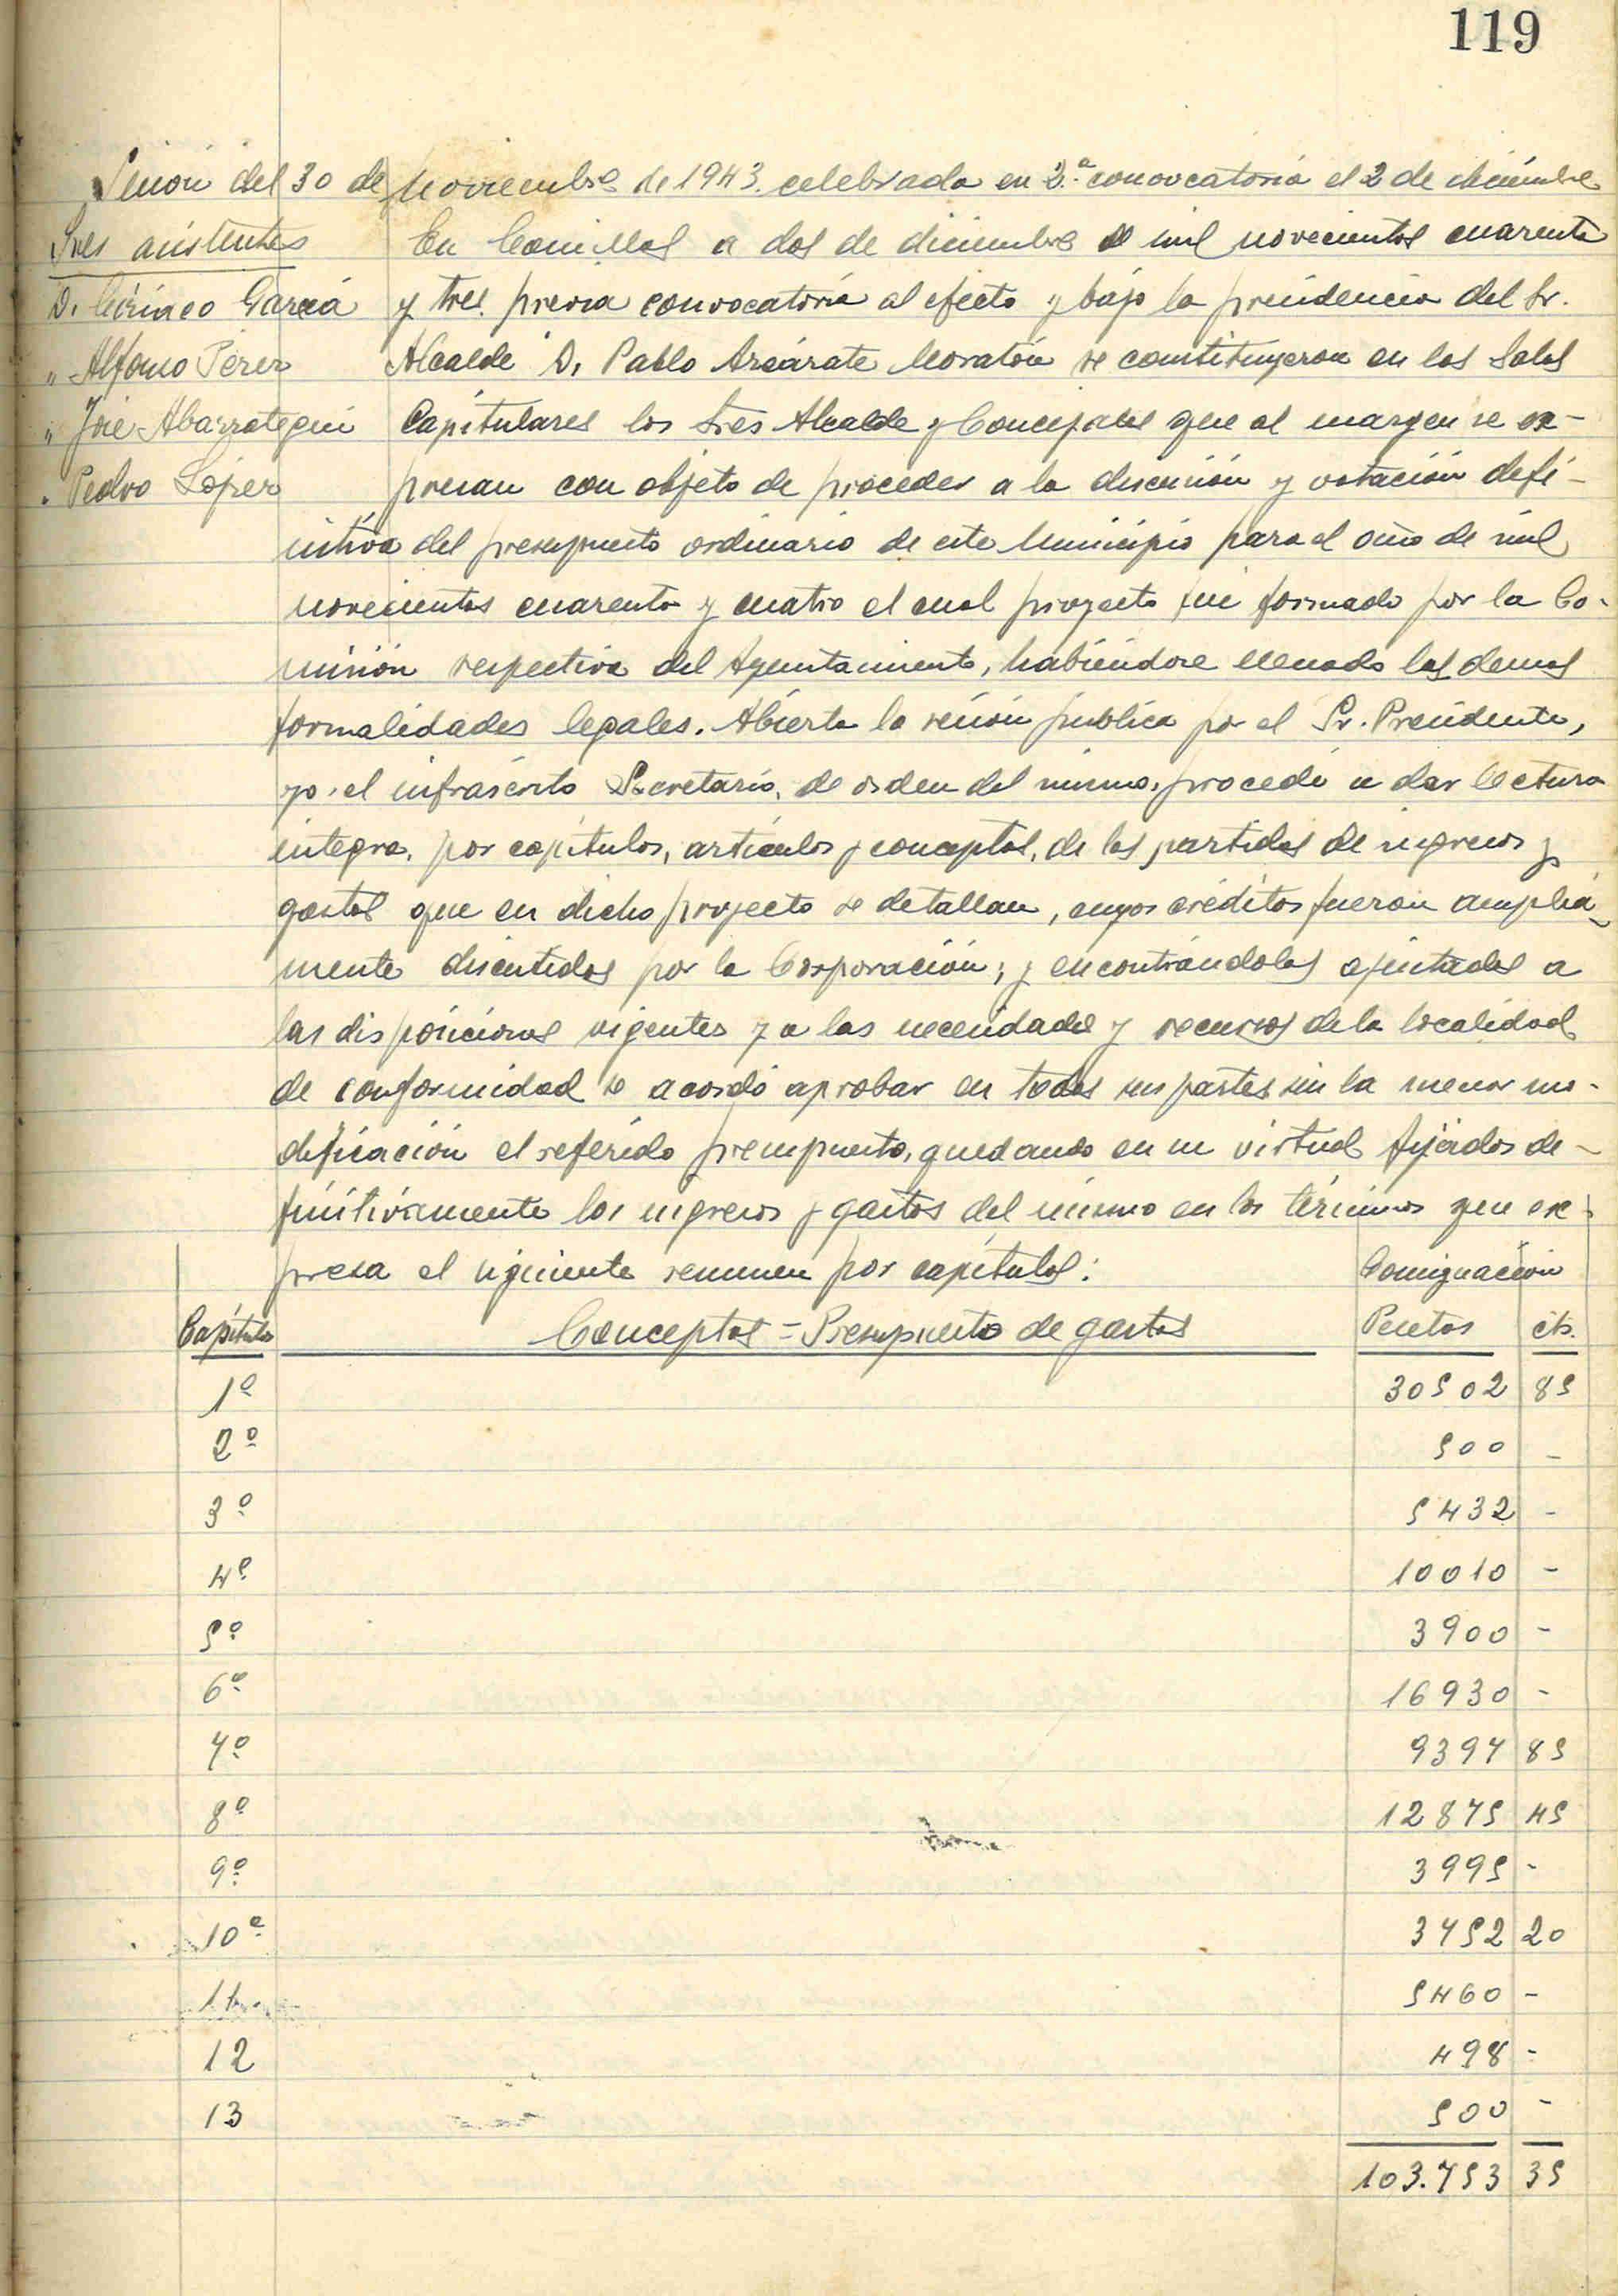 119
Sesion del 30 de Noviembre de 1943. celebrada en 2.ª convocatoria el 2 de diciembre
Sres asistentes
D. Ciriaco Garcia
" Alfonso Pérez
" José Abarrategui
" Pedro López
En Comillas a dos de diciembre de mil novecientos cuarenta
y tres. previa convocatoria al efecto y bajo la presidencia del Sr.
Alcalde D. Pablo Azcárate Moratón se constituyeron en las Salas
Capitulares los Sres Alcalde y Concejales que al margen se ex-
presan con objeto de proceder a la discusión y votación defi-
nitiva del presupuesto ordinario de este Municipio para el año de mil
novecientos cuarenta y cuatro el cual proyecto fue formado por la Co-
misión respectiva del Ayuntamiento, habiéndose llenado las demas
formalidades legales. Abierta la sesión pública por el Sr. Presidente,
yo, el infrascrito Secretario, de orden del mismo, procedí a dar lectura
integra, por capítulos, artículos y conceptos, de las partidas de ingresos y
gastos que en dicho proyecto se detallan, cuyos créditos fueron amplia-
mente discutidos por la Corporación; y encontrándolas ajustadas a
las disposiciones vigentes y a las necesidades y recursos de la localidad
de conformidad se acordó aprobar en todas sus partes sin la menor mo-
dificación el referido presupuesto, quedando en su virtud fijados de-
finitivamente los ingresos y gastos del mismo en los términos que ex-
presa el siguiente resumen por capítulos:
Consignación
Capítulos Conceptos = Presupuesto de gastos Pesetas cts.
1º 30502 85
2º 500 -
3º 5432 -
4º 10010 -
5º 3900 -
6º 16930 -
7º 9397 85
8º 12875 45
9º 3995 -
10º 3752 20
11 5460 -
12 498 -
13 500 -
103.753 35